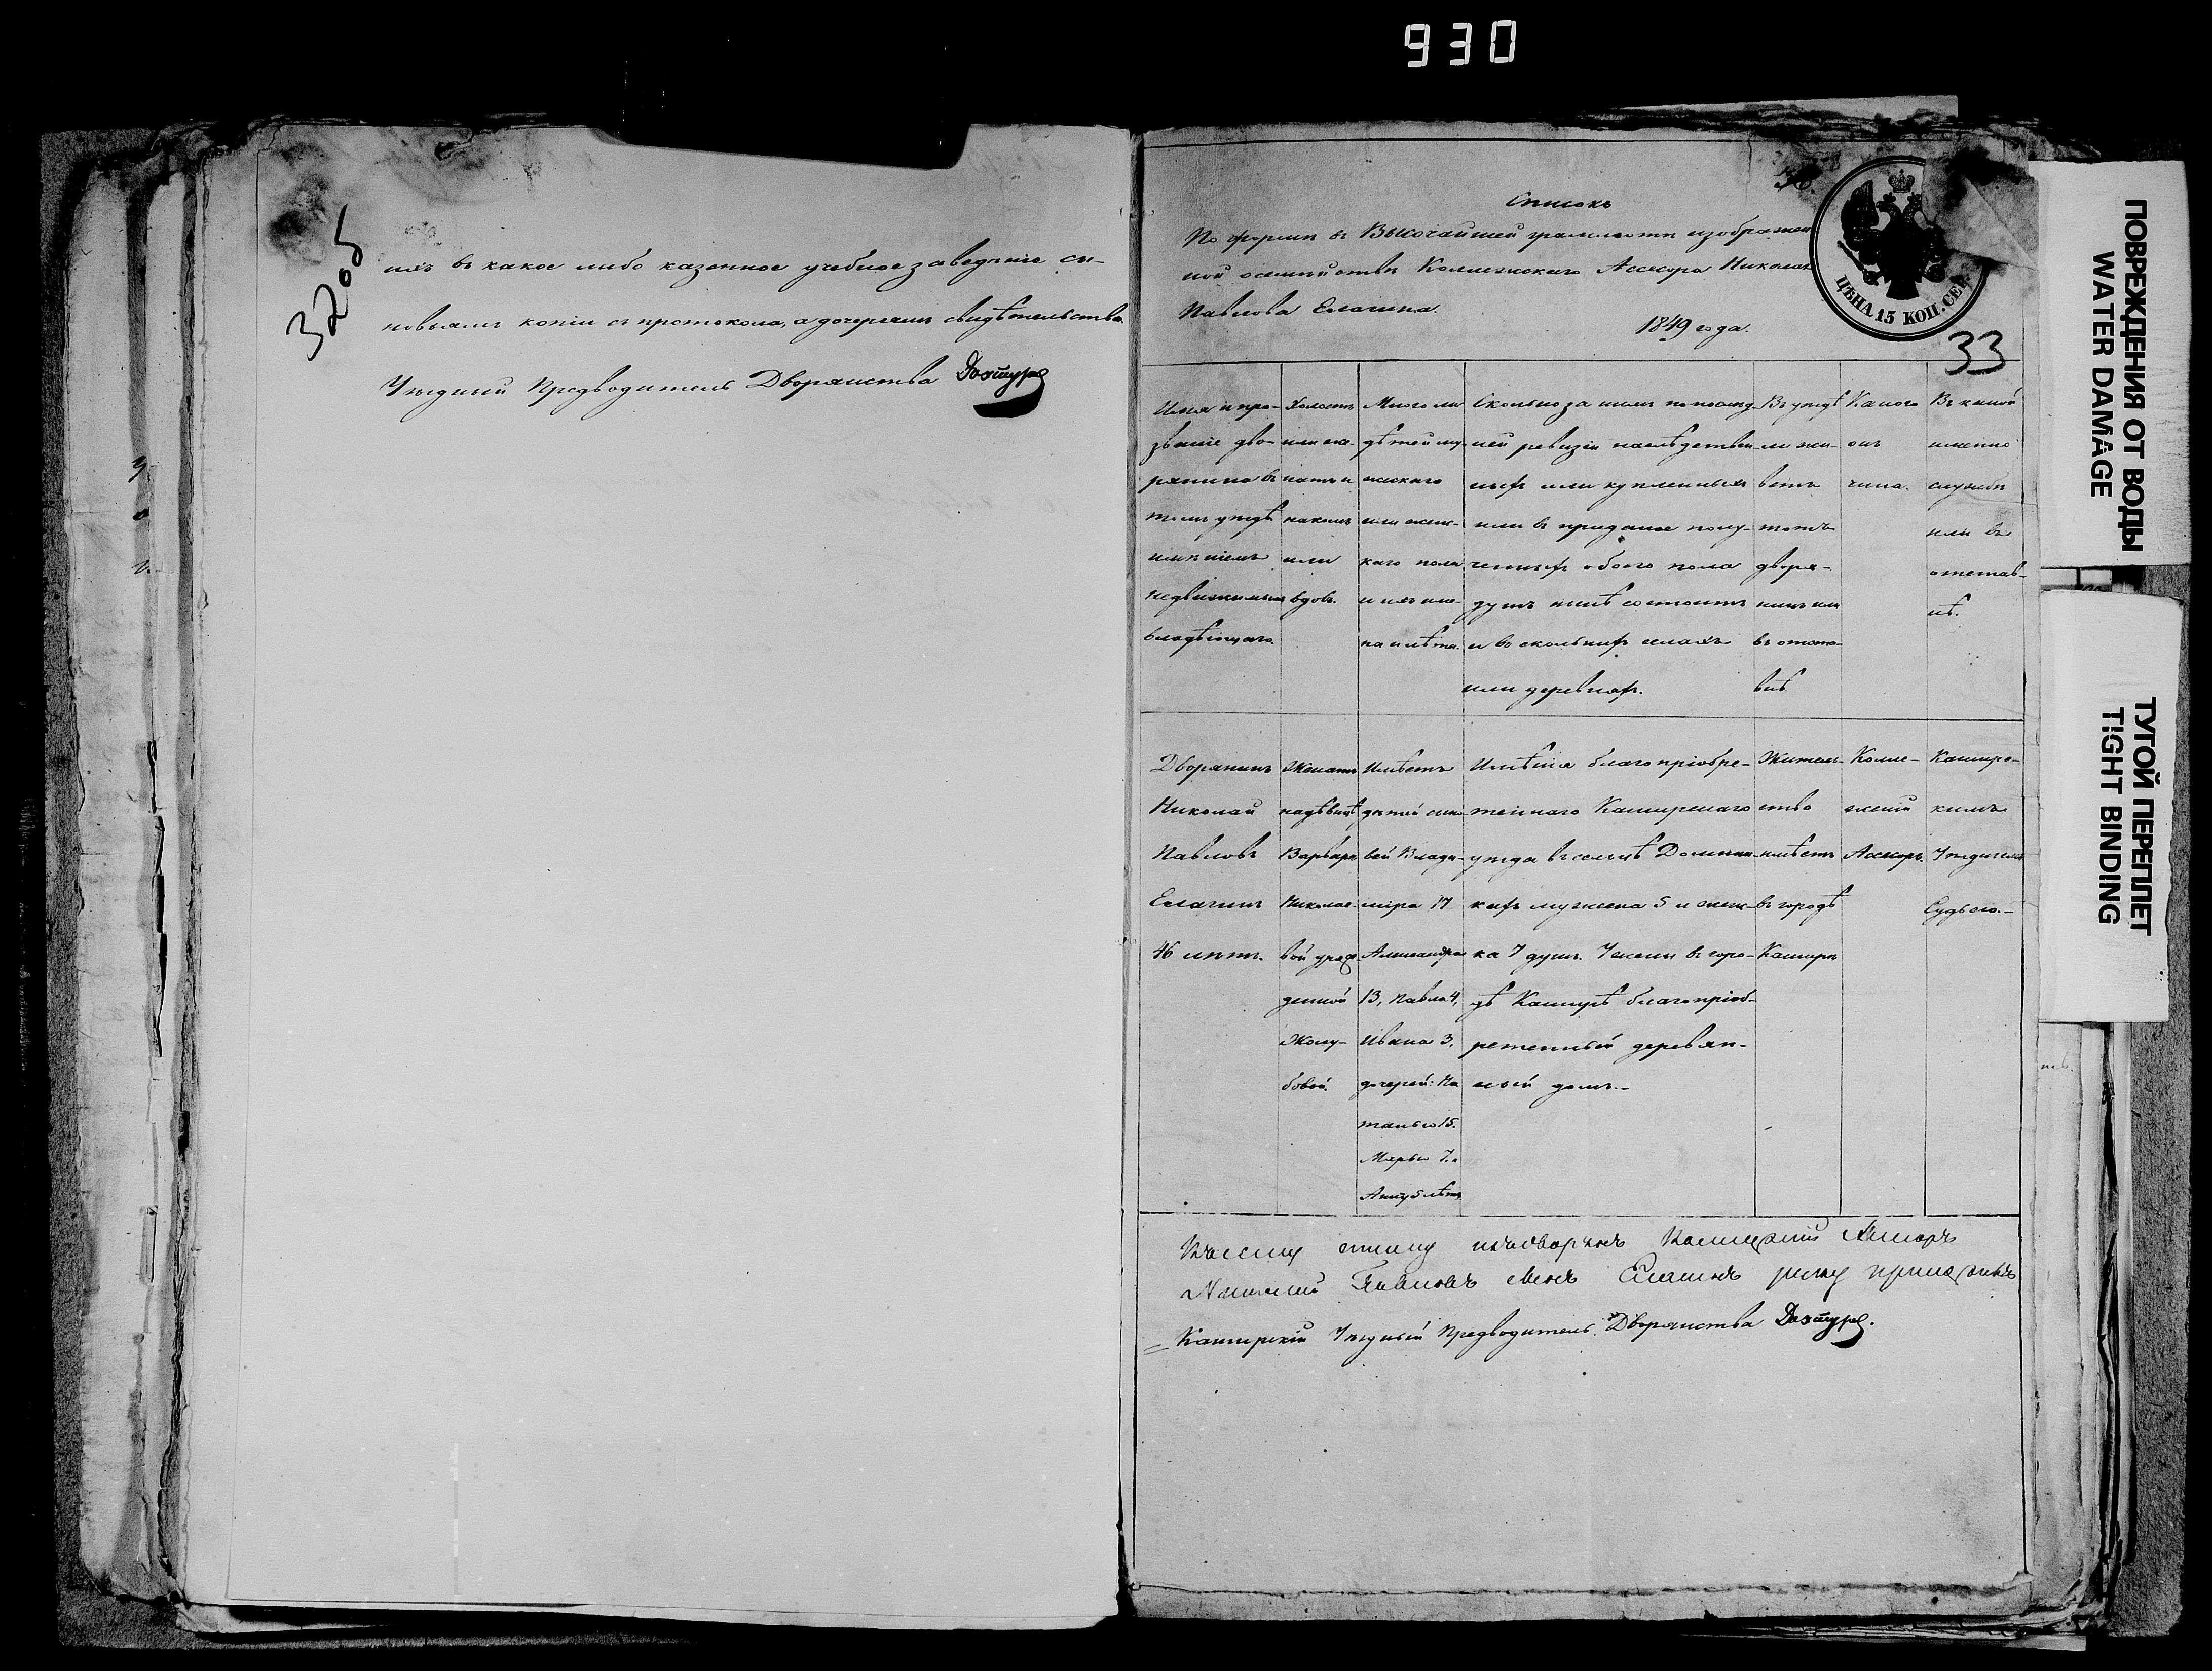 930
3205
ихъ въ какое либо казенное учебное заведенiе сы-
новьямъ копiи съ протокола, а дочерямъ свидѣтельства.
Уѣздный Предводитель Дворянства
Списокъ
По формѣ въ Высочайшей грамотѣ изображен
ной о семействѣ Коллежскаго Ассесора Николая
Павлова Елагина.
1849 года.
ЦѢНА 15 КОП. СЕР
33
Имя и про-
званiе дво-
рянина въ
томъ уѣздѣ
имѣнiемъ
недвижимымъ
владѣющаго.
Холостъ
или же-
натъ и
на комъ
или
вдовъ.
Много ли
дѣтей му-
жескаго
или женс-
каго пола
и ихъ име-
на и лѣта.
Сколько за нимъ по послѣд-
ней ревизiи наслѣдствен-
ныхъ или купленныхъ
или въ приданое полу-
ченныхъ обоего пола
душъ нынѣ состоитъ
и въ сколькихъ селахъ
или деревняхъ.
Въ уѣздѣ
ли жи-
ветъ
тотъ
дворя-
нинъ или
въ отлуч-
Какого
онъ
чина.
Въ какой
именно
службѣ
или въ
отстав-
кѣ.
Дворянинъ
Николай
Павловъ
Елагинъ
46 лѣтъ.
Женатъ
на дѣвицѣ
Варварѣ
Николае-
вой урож
денной
Жолу-
бовой.
Имѣетъ
дѣтей сыно
вей Влади-
мiра 17
Александра
13, Павла 4,
Ивана 3,
дочерей: На
талью 15.
Марью 7. и
Анну 5 лѣтъ
Имѣнiя благопрiобре-
теннаго Каширскаго
уѣзда въ сельцѣ
кахъ мужеска 5 и женс-
ка 7 душъ. У жены въ горо-
дѣ Каширѣ благопрiоб-
ретенный деревян-
ный домъ.-
Житель-
ство
имѣетъ
въ городѣ
Каширѣ
Колле-
жскiй
Ассесоръ.
Каширс-
кимъ
Уѣзднымъ
Судьею.-
Къ сему списку изъ дворянъ Коллежскiй Ассесоръ
Николай Павловъ сынъ Елагинъ руку приложилъ
Каширскiй Уѣздный Предводитель Дворянства
ПОВРЕЖДЕНИЯ ОТ ВОДЫ
WATER DAMAGE
ТУГОЙ ПЕРЕПЛЕТ
TIGHT BINDING